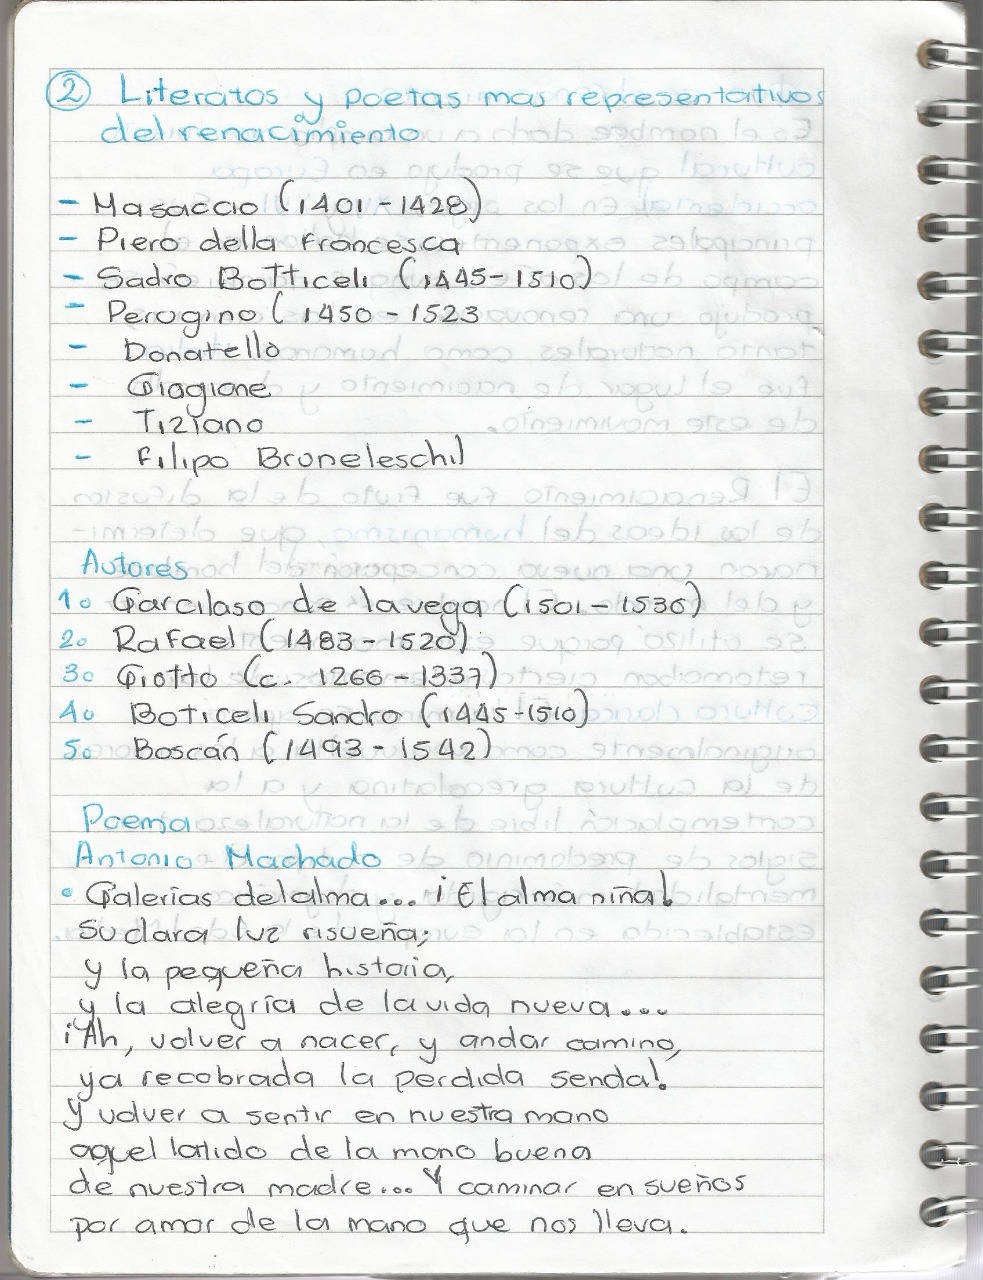 2 Literatos y poetas mas representativos
del renacimiento
- Masaccio (1401-1428)
- Piero della francesca
- Sadro Botticeli (1445-1510)
- Perogino ( 1450 - 1523
- Donatello
- Giogione
- Tiziano
- Filipo Broneleschil
Autores
1o Garcilaso de la vega (1501-1536)
2o Rafael (1483-1520)
3o Giotto (c. 1266-1337)
4o Boticeli Sandro (1445-1510)
5o Boscán (1493-1542)
Poema
Antonio Machado
• Galerías del alma... ¡El alma niña!
Su clara luz risueña;
y la pequeña historia,
y la alegría de la vida nueva...
¡Ah, volver a nacer, y andar camino,
ya recobrada la perdida senda!
Y volver a sentir en nuestra mano
aquel latido de la mano buena
de nuestra madre... Y caminar en sueños
por amor de la mano que nos lleva.